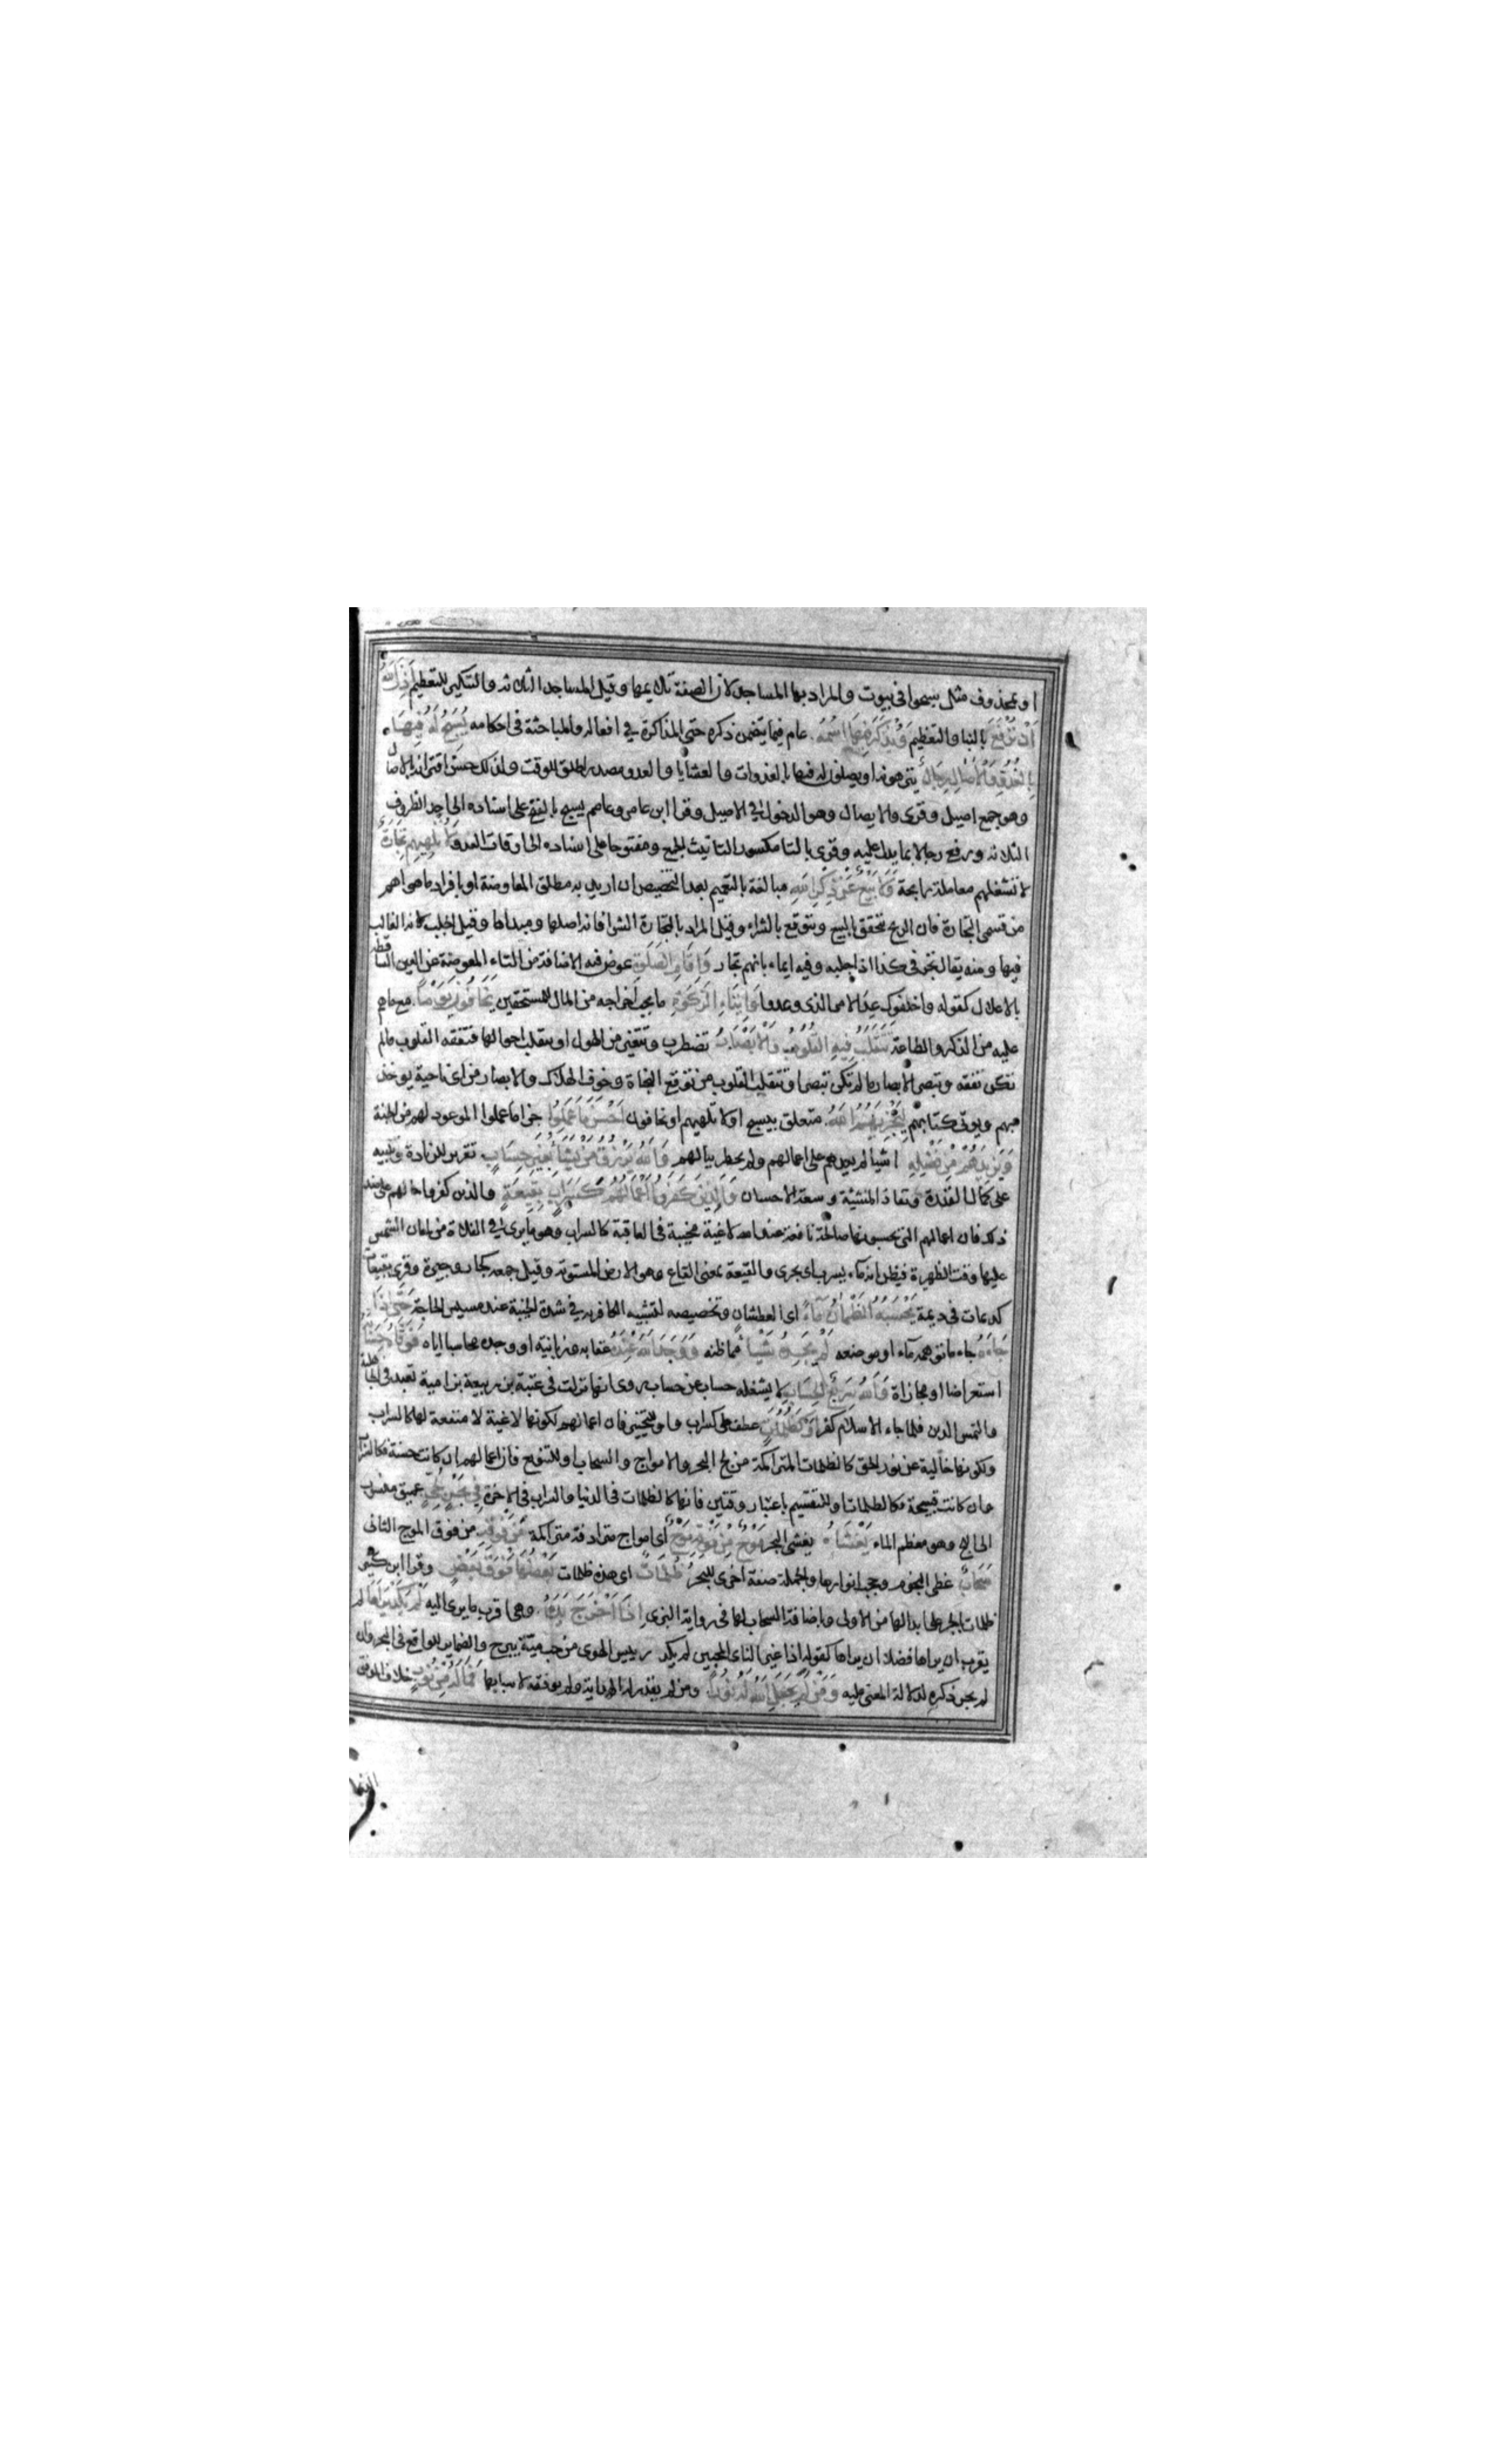 او بمحذوف مثل سبحوا في بيوت والمراد بها المساجد لان الصفة تلايمها وقيل المساجد الثلاثة والتنكير للتعظيم اذن الله
ان ترفع بالبنا والتعظيم ويذكر فيها اسمه عام فيما يتضمن ذكره حتى المذاكرة في افعاله والمباحثة في احكامه يسبح له فيها
بالغدو والاصال رجال ينزهونه او يصلون له فيها بالغدوات والعشايا والغدو مصدر اطلق للوقت ولذلك حسن اقترانه بالاصال
وهو جمع اصيل وقرى والايصال وهو الدخول في الاصيل وقرا ابن عامر وعاصم يسبح بالفتح على اسناده الى احد الظروف
الثلاثة ورفع رجال بما يدل عليه وقرى بالتا مكسورا لتانيث الجمع ومفتوحا على اسناده الى اوقات الغدو لا تلهيهم تجارة
لا تشغلهم معاملة رابحة ولا بيع عن ذكر الله مبالغة بالتعميم بعد التخصيص ان اريد به مطلق المعاوضة او بافراد ما هو اهم
من قسمى التجارة فان الربح يتحقق بالبيع ويتوقع بالشراء وقيل المراد بالتجارة الشرا فانه اصلها ومبداها وقيل الجلب لانه الغالب
فيها ومنه يقال تجر في كذا اذا جلبه وفيه ايماء بانهم تجار واقام الصلوة عوض فيه الاضافة من التاء المعوضة عن العين الساقطة
بالاعلال كقوله واخلفوك عد الامر الذى وعدوا وايتاء الزكوة ما يجب اخراجه من المال للمستحقين يخافون يوما مع ما هم
عليه من الذكر والطاعة تتقلب فيه القلوب والابصار تضطرب وتتغير من الهول او يتقلب احوالها فتفقه القلوب مالم
تكن تفقه وتبصر الابصار ما لم تكن تبصر او تتقلب القلوب من توقع النجاة وخوف الهلاك والابصار من اى ناحية يوخذ
بهم ويوتى كتابهم ليجزيهم الله متعلق بيسبح او لا تلهيهم او يخافون احسن ما عملوا جزا ما عملوا الموعود لهم من الجنة
ويزيدهم من فضله اشيا لم يعدهم على اعمالهم ولم يخطر ببالهم والله يرزق من يشاء بغير حساب تقرير للزيادة وتنبيه
على كمال القدرة ونفاذ المشيئة وسعة الاحسان والذين كفروا اعمالهم كسراب بقيعة والذين كفروا حالهم على ضد
ذلك فان اعمالهم التى يحسبونها صالحة نافعة عند الله لاغية مخيبة في العاقبة كالسراب وهو ما يرى في الفلاة من لمعان الشمس
عليها وقت الظهيرة فيظن انه ماء يسرب اى يجرى والقيعة بمعنى القاع وهو الارض المستوية وقيل جمعه كجار وجيرة وقرى بقيعات
كديمات في ديمة يحسبه الظمان ماء اى العطشان وتخصيصه لتشبيه الكافر به في شدة الخيبة عند مسيس الحاجة حتى اذا
جاءه جاء ما توهمه ماء او موضعه لم يجده شيا مما ظنه ووجد الله عنده عقابه وزبانيته او وجده محاسبا اياه فوفاه حسابه
استعراضا او مجازاة والله سريع الحساب لا يشغله حساب عن حساب روى انها نزلت في عتبة بن ربيعة بن امية تعبد في الجاهلية
والتمس الدين فلما جاء الاسلام كفر او كظلمات عطف على كسراب واو للتخيير فان اعمالهم لكونها لاغية لا منفعة لها كالسراب
ولكونها خالية عن نور الحق كالظلمات المتراكمة من لج البحر والامواج والسحاب او للتنويع فان اعمالهم ان كانت حسنة فكالسراب
وان كانت قبيحة فكالظلمات او للتقسيم باعتبار وقتين فانها كالظلمات في الدنيا والسراب في الاخرة في بحر لجى عميق منسوب
الى اللج وهو معظم الماء يغشاه يغشى البحر موج من فوقه موج اى امواج مترادفة متراكمة من فوقه من فوق الموج الثانى
سحاب غطى النجوم وحجب انوارها والجملة صفة اخرى للبحر ظلمات اى هذه ظلمات بعضها فوق بعض وقرا ابن كثير
ظلمات بالجر على ابدالها من الاولى وباضافة السحاب لها في رواية البزى اذا اخرج يده وهى اقرب ما يرى اليه لم يكد يراها لم
يقرب ان يراها فضلا ان يراها كقوله اذا غير الناى المحبين لم يكد رسيس الهوى من حب مية يبرح والضماير للواقع في البحر وان
لم يجر ذكره لدلالة المعنى عليه ومن لم يجعل الله له نورا ومن لم يقدر له الهداية ولم يوفقه لاسبابها فما له من نور خلاف الموفق